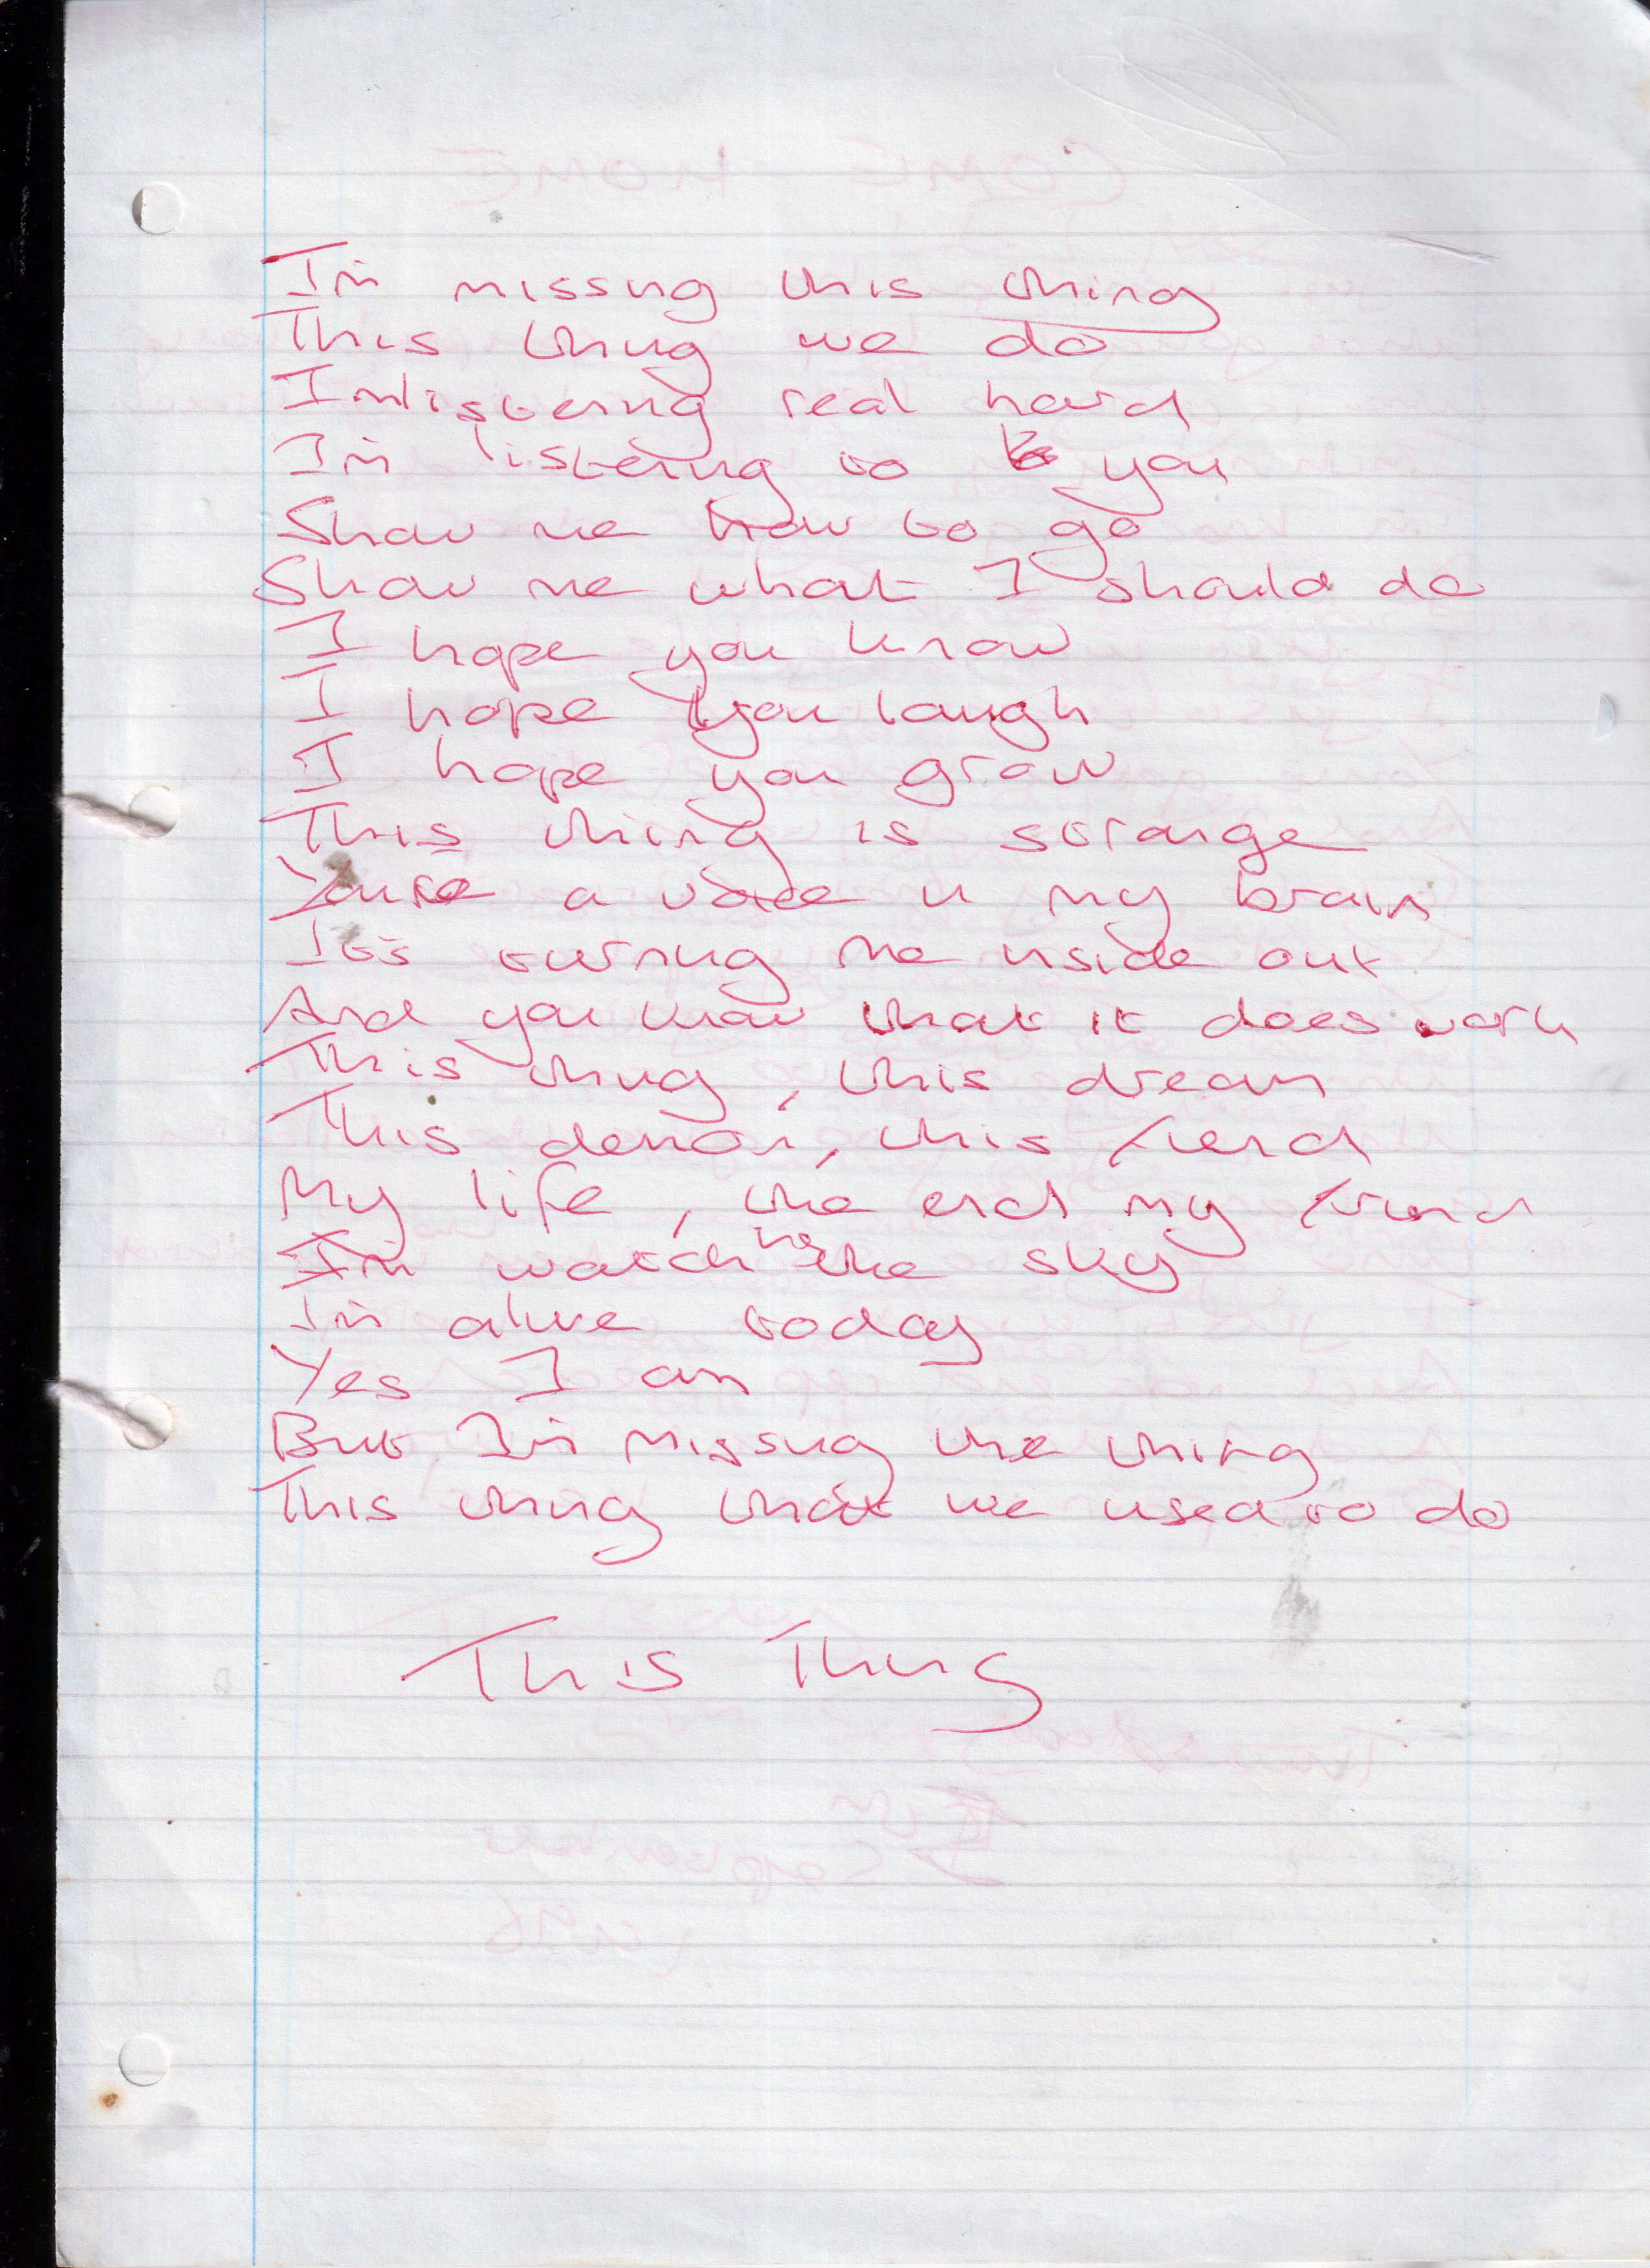 I'm missing this thing
This thing we do
I'm listening real hard
I'm listening to you
Show me how to go
Show me what I should do
I hope you know
I hope you laugh
I hope you grow
This thing is strange
You're a voice in my brain
It's turning me inside out
And you know that it does work
This thing, this dream
This demon, this fiend
My life, the end my friend
I'm watching the sky
I'm alive today
Yes I am
But I'm missing the thing
This thing that we used to do
This Thing
COME HOME
September
1996